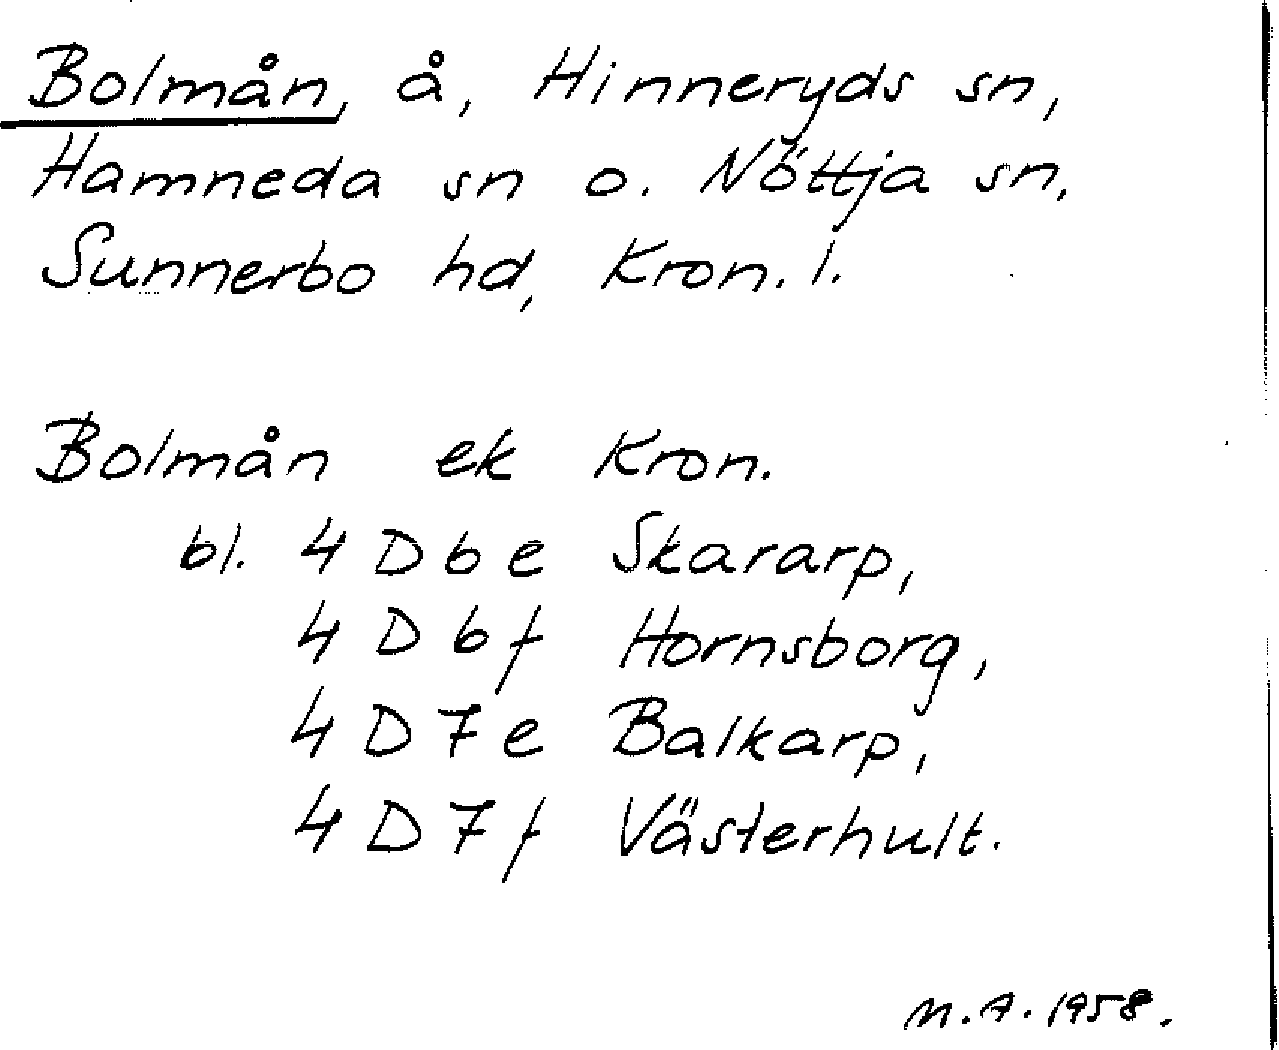 Bolmån, å, Hinneryds sn,
Hamneda sn o. Nöttja sn.
Sunnerbo hd, Kron. l.
Bolmån ek Kron.
bl. 4 D 6 e Skararp,
4 D 6 f Hornsborg,
4 D 7 e Balkarp,
4 D 7 f Västerhult.
M.A. 1958.